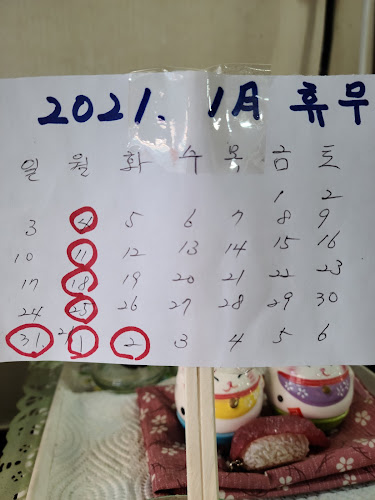 2021. 1月 휴무
일 월 화 수 목 금 토
1 2
3 4 5 6 7 8 9
10 11 12 13 14 15 16
17 18 19 20 21 22 23
24 25 26 27 28 29 30
31 2/1 2 3 4 5 6